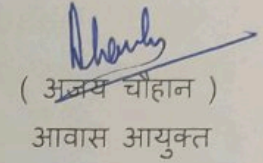 ( अजय चौहान )
आवास आयुक्त